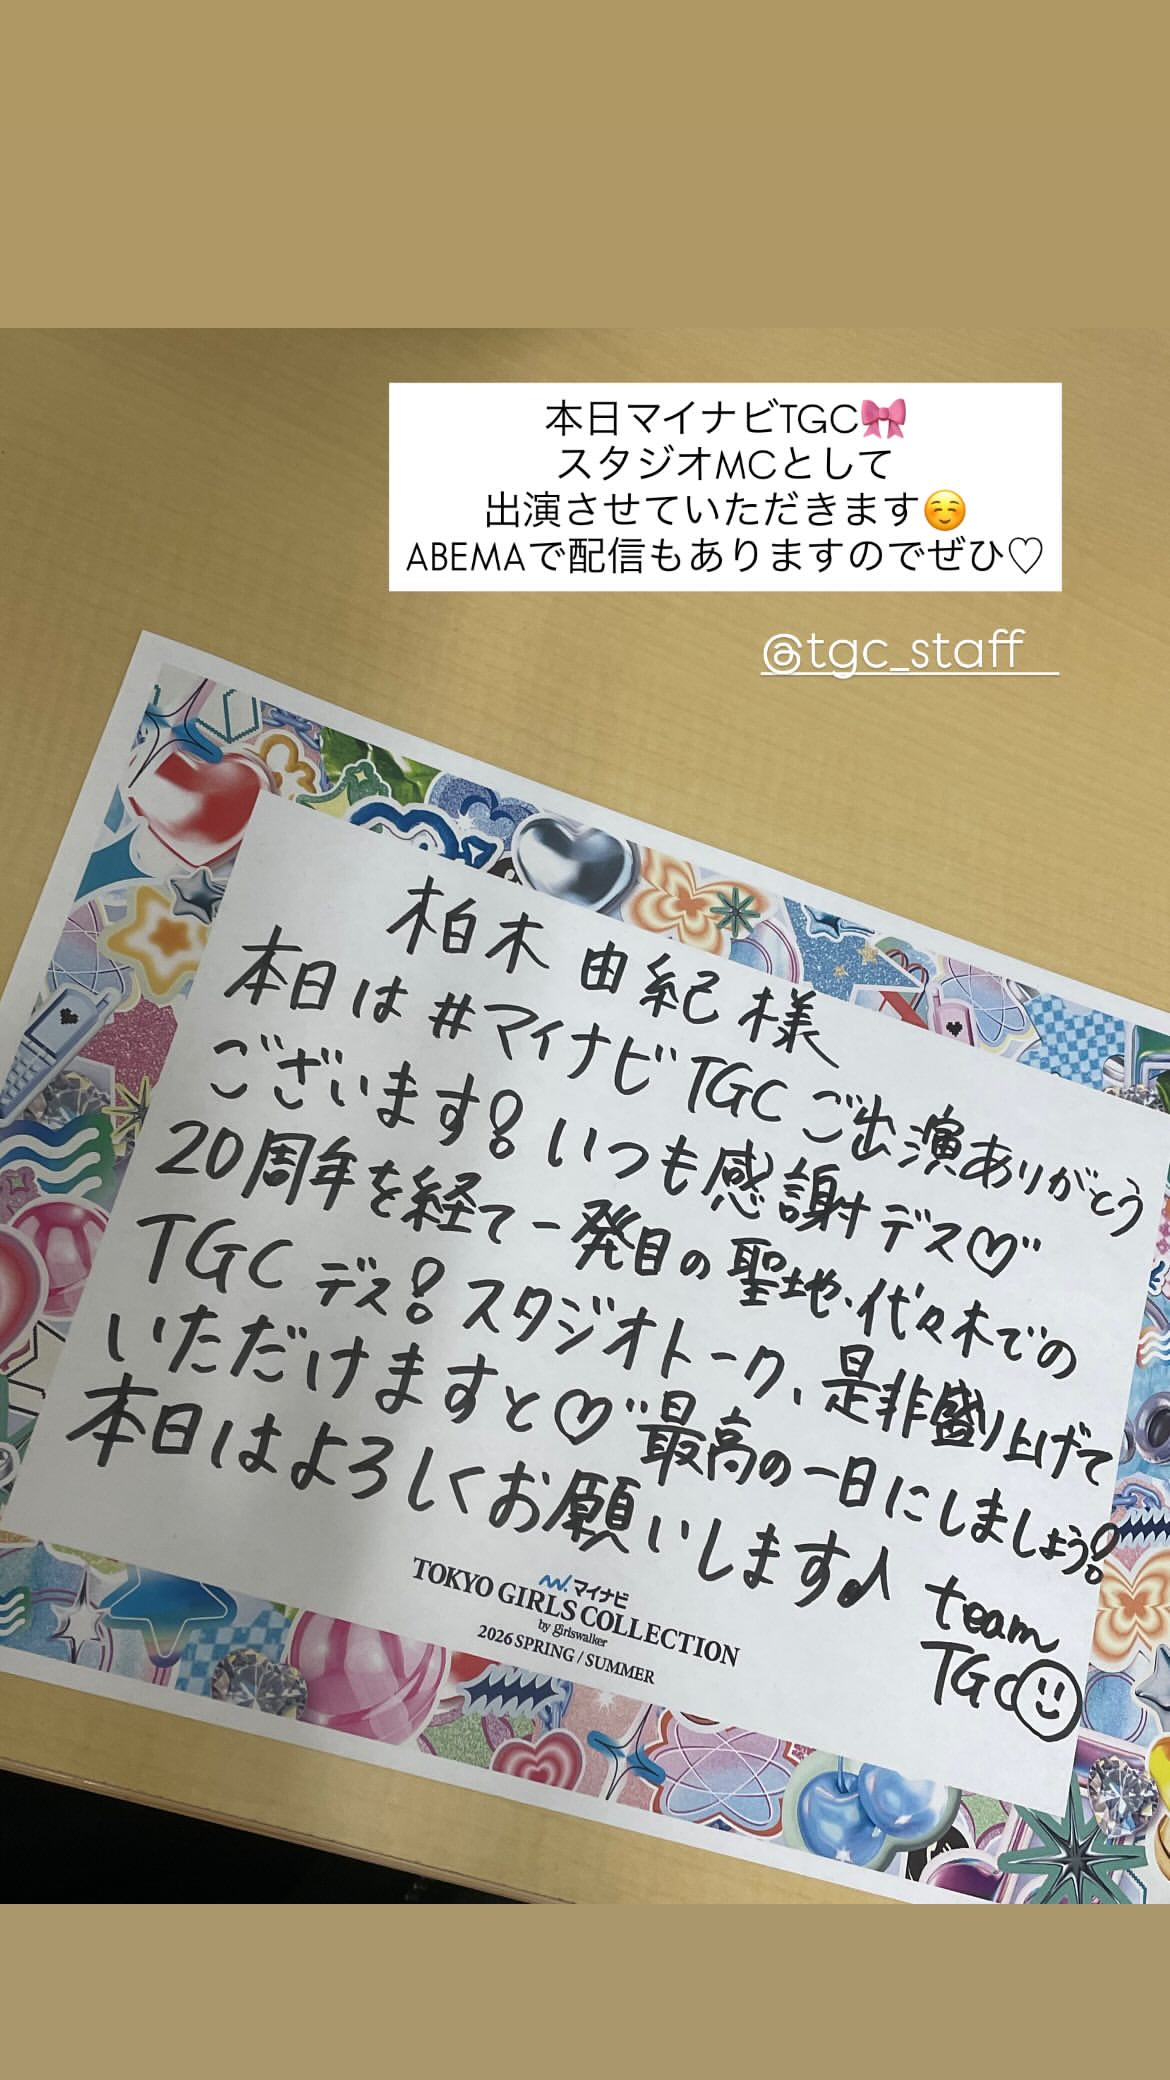 本日マイナビTGC🎀
スタジオMCとして
出演させていただきます☺️
ABEMAで配信もありますのでぜひ♡
@tgc_staff
柏木 由紀 様
本日は #マイナビTGC ご出演ありがとう
ございます! いつも感謝デス♡
20周年を経て一発目の聖地、代々木での
TGC デス! スタジオトーク、是非盛り上げて
いただけますと♡ 最高の一日にしましょう!
本日はよろしくお願いします♪
team
TGC
マイナビ
TOKYO GIRLS COLLECTION
by girlswalker
2026 SPRING / SUMMER